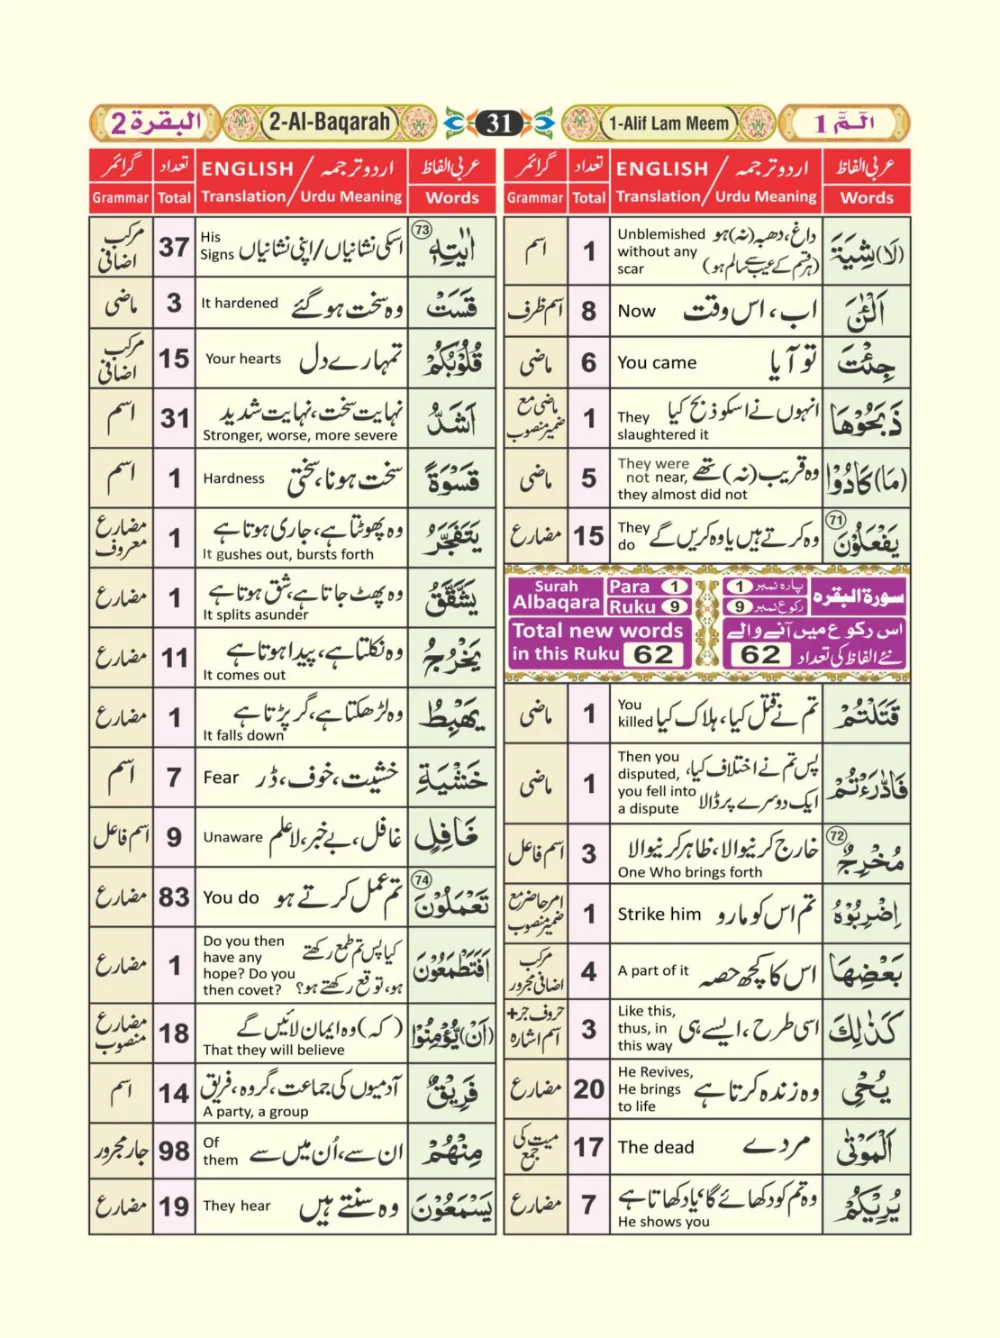 الٓمّٓ 1
1-Alif Lam Meem
31
2-Al-Baqarah
البقرة 2
عربی الفاظ اردو ترجمہ / ENGLISH تعداد گرائمر
Words Urdu Meaning / Translation Total Grammar
(لَا) شِيَةَ داغ، دھبہ (نہ) ہو Unblemished 1 اسم
(ہر قسم کے عیب سے سالم ہو) without any
scar
اَلْـٰٔنَ اب، اس وقت Now 8 اسم ظرف
جِئْتَ تو آیا You came 6 ماضی
ذَبَحُوْهَا انہوں نے اسکو ذبح کیا They 1 ماضی مع
slaughtered it ضمیر منصوب
(مَا) كَادُوْا وہ قریب (نہ) تھے They were 5 ماضی
not near,
they almost did not
يَفْعَلُوْنَ 71 وہ کرتے ہیں یا وہ کریں گے They 15 مضارع
do
سورة البقره پاره نمبر 1 Para 1 Surah
رکوع نمبر 9 Ruku 9 Albaqara
اس رکوع میں آنے والے Total new words
نئے الفاظ کی تعداد 62 in this Ruku 62
قَتَلْتُمْ تم نے قتل کیا، ہلاک کیا You 1 ماضی
killed
فَادّٰرَءْتُمْ پس تم نے اختلاف کیا، Then you 1 ماضی
ایک دوسرے پر ڈالا disputed,
you fell into
a dispute
مُخْرِجٌ 72 خارج کرنیوالا، ظاہر کرنیوالا 3 اسم فاعل
One Who brings forth
اِضْرِبُوْهُ تم اس کو مارو Strike him 1 امر حاضر مع
ضمیر منصوب
بَعْضِهَا اس کا کچھ حصہ A part of it 4 مرکب
اضافی مجرور
كَذٰلِكَ اسی طرح، ایسے ہی Like this, 3 حروف جر+
thus, in اسم اشارہ
this way
يُحْيِ وہ زندہ کرتا ہے He Revives, 20 مضارع
He brings
to life
اَلْمَوْتٰى مردے The dead 17 میت کی
جمع
يُرِيْكُمْ وہ تم کو دکھائے گا یا دکھاتا ہے 7 مضارع
He shows you
عربی الفاظ اردو ترجمہ / ENGLISH تعداد گرائمر
Words Urdu Meaning / Translation Total Grammar
اٰيٰتِهٖ 73 اسکی نشانیاں/اپنی نشانیاں His 37 مرکب
Signs اضافی
قَسَتْ وہ سخت ہو گئے It hardened 3 ماضی
قُلُوْبُكُمْ تمہارے دل Your hearts 15 مرکب
اضافی
اَشَدُّ نہایت سخت، نہایت شدید 31 اسم
Stronger, worse, more severe
قَسْوَةً سخت ہونا، سختی Hardness 1 اسم
يَتَفَجَّرُ وہ پھوٹتا ہے، جاری ہوتا ہے 1 مضارع
It gushes out, bursts forth معروف
يَشَّقَّقُ وہ پھٹ جاتا ہے، شق ہوتا ہے 1 مضارع
It splits asunder
يَخْرُجُ وہ نکلتا ہے، پیدا ہوتا ہے 11 مضارع
It comes out
يَهْبِطُ وہ لڑھکتا ہے، گر پڑتا ہے 1 مضارع
It falls down
خَشْيَةِ خشیت، خوف، ڈر Fear 7 اسم
غَافِلٍ غافل، بے خبر، لا علم Unaware 9 اسم فاعل
تَعْمَلُوْنَ 74 تم عمل کرتے ہو You do 83 مضارع
اَفَتَطْمَعُوْنَ کیا پس تم طمع رکھتے Do you then 1 مضارع
ہو، توقع رکھتے ہو؟ have any
hope? Do you
then covet?
(اَنْ) يُّؤْمِنُوْا (کہ) وہ ایمان لائیں گے 18 مضارع
That they will believe منصوب
فَرِيْقٌ آدمیوں کی جماعت، گروہ، فریق 14 اسم
A party, a group
مِنْهُمْ ان سے، اُن میں سے Of 98 جار مجرور
them
يَسْمَعُوْنَ وہ سنتے ہیں They hear 19 مضارع